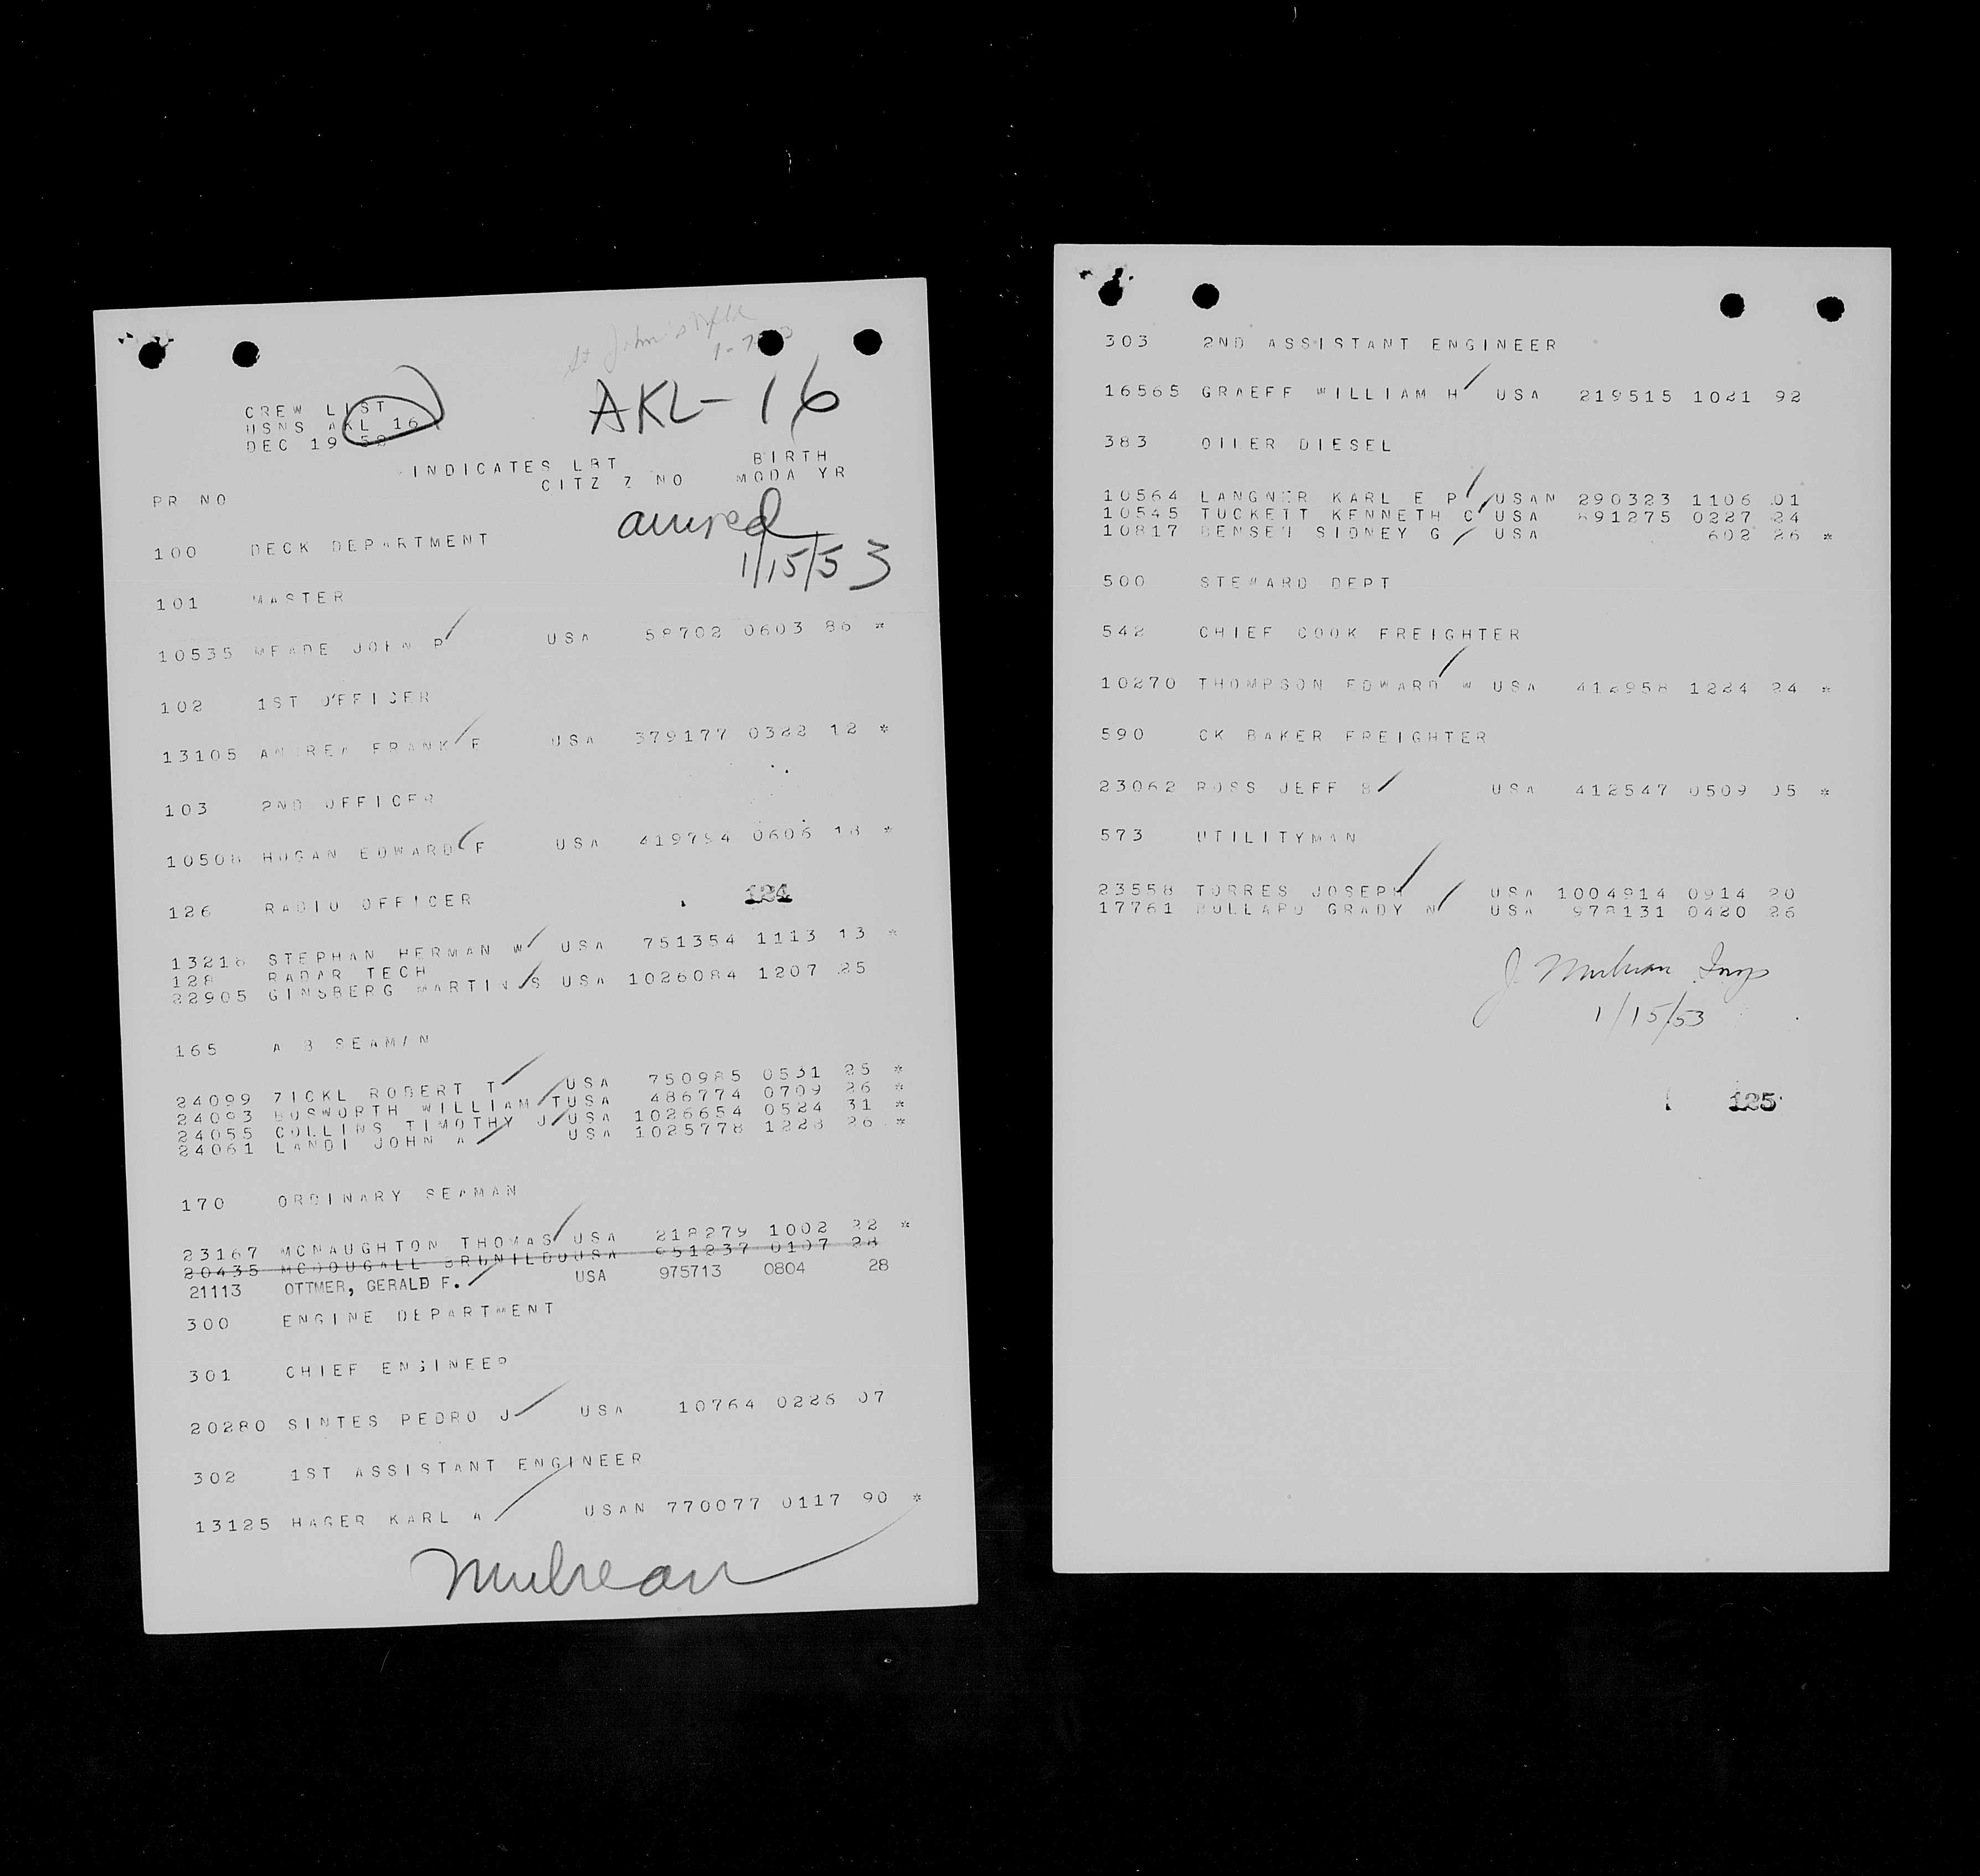 St John's Nfld
AKL-16
CREW LIST
USNS AKL 16
DEC 19 52
INDICATES LBT BIRTH
CITZ Z NO MODA YR
PR NO
arrived
1/15/53
100 DECK DEPARTMENT
101 MASTER
10535 MEADE JOHN P USA 58702 0603 86 *
102 1ST OFFICER
13105 ANDREA FRANK F USA 379177 0322 12 *
103 2ND OFFICER
10508 HOGAN EDWARD F USA 419794 0606 18 *
126 RADIO OFFICER
124
13218 STEPHAN HERMAN W USA 751354 1113 13 *
128 RADAR TECH
22905 GINSBERG MARTIN S USA 1026084 1207 25
165 A B SEAMAN
24099 ZICKL ROBERT T USA 750985 0531 25 *
24093 BOSWORTH WILLIAM T USA 486774 0709 26 *
24055 COLLINS TIMOTHY J USA 1026654 0524 31 *
24061 LANDI JOHN A USA 1025778 1228 26 *
170 ORDINARY SEAMAN
23167 MCNAUGHTON THOMAS USA 218279 1002 22 *
20435 MCDOUGALL BRUNILDO USA 951237 0107 28
21113 OTTMER, GERALD F. USA 975713 0804 28
300 ENGINE DEPARTMENT
301 CHIEF ENGINEER
20280 SINTES PEDRO J USA 10764 0226 07
302 1ST ASSISTANT ENGINEER
13125 HAGER KARL A USAN 770077 0117 90 *
Mulrean
303 2ND ASSISTANT ENGINEER
16565 GRAEFF WILLIAM H USA 219515 1021 92
383 OILER DIESEL
10564 LANGNER KARL E P USAN 290323 1106 01
10545 TUCKETT KENNETH C USA 891275 0227 24
10817 BENSEN SIDNEY G USA 602 26 *
500 STEWARD DEPT
542 CHIEF COOK FREIGHTER
10270 THOMPSON EDWARD W USA 412958 1224 24 *
590 CK BAKER FREIGHTER
23062 ROSS JEFF B USA 412547 0509 05 *
573 UTILITYMAN
23558 TORRES JOSEPH USA 1004914 0914 20
17761 BULLARD GRADY N USA 978131 0420 26
J. Mulrean Insp
1/15/53
125